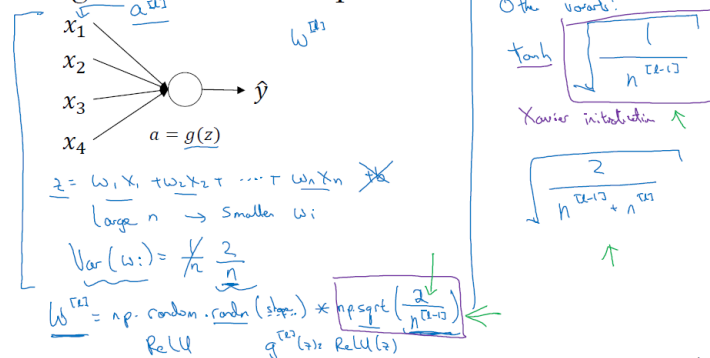 a^[l]
x₁
x₂
x₃
x₄
w^[l]
ŷ
a = g(z)
z = w₁x₁ + w₂x₂ + ····· + wₙxₙ +b
Large n → Smaller wᵢ
Var(wᵢ) = 1/n 2/n
W^[l] = np.random.randn(shape) * np.sqrt(2/n^[l-1])
ReLU g^[l](z) = ReLU(z)
Other variants:
tanh √(1/n^[l-1])
Xavier initialization ↑
√(2/(n^[l-1] + n^[l]))
↑